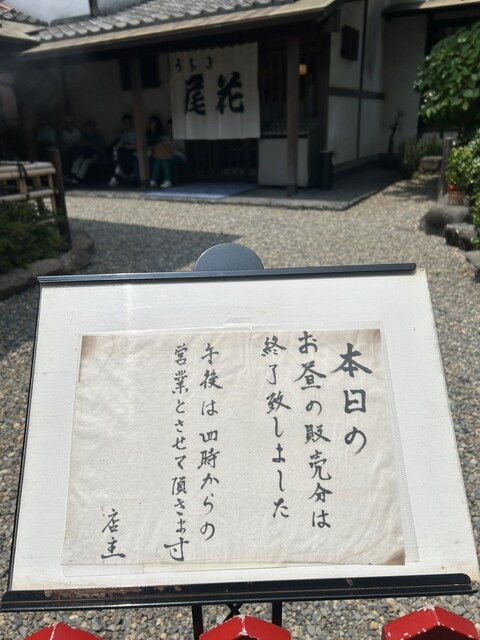 うなぎ
尾花
本日の
お昼の販売分は
終了致しました
午後は四時からの
営業とさせて頂きます
店主